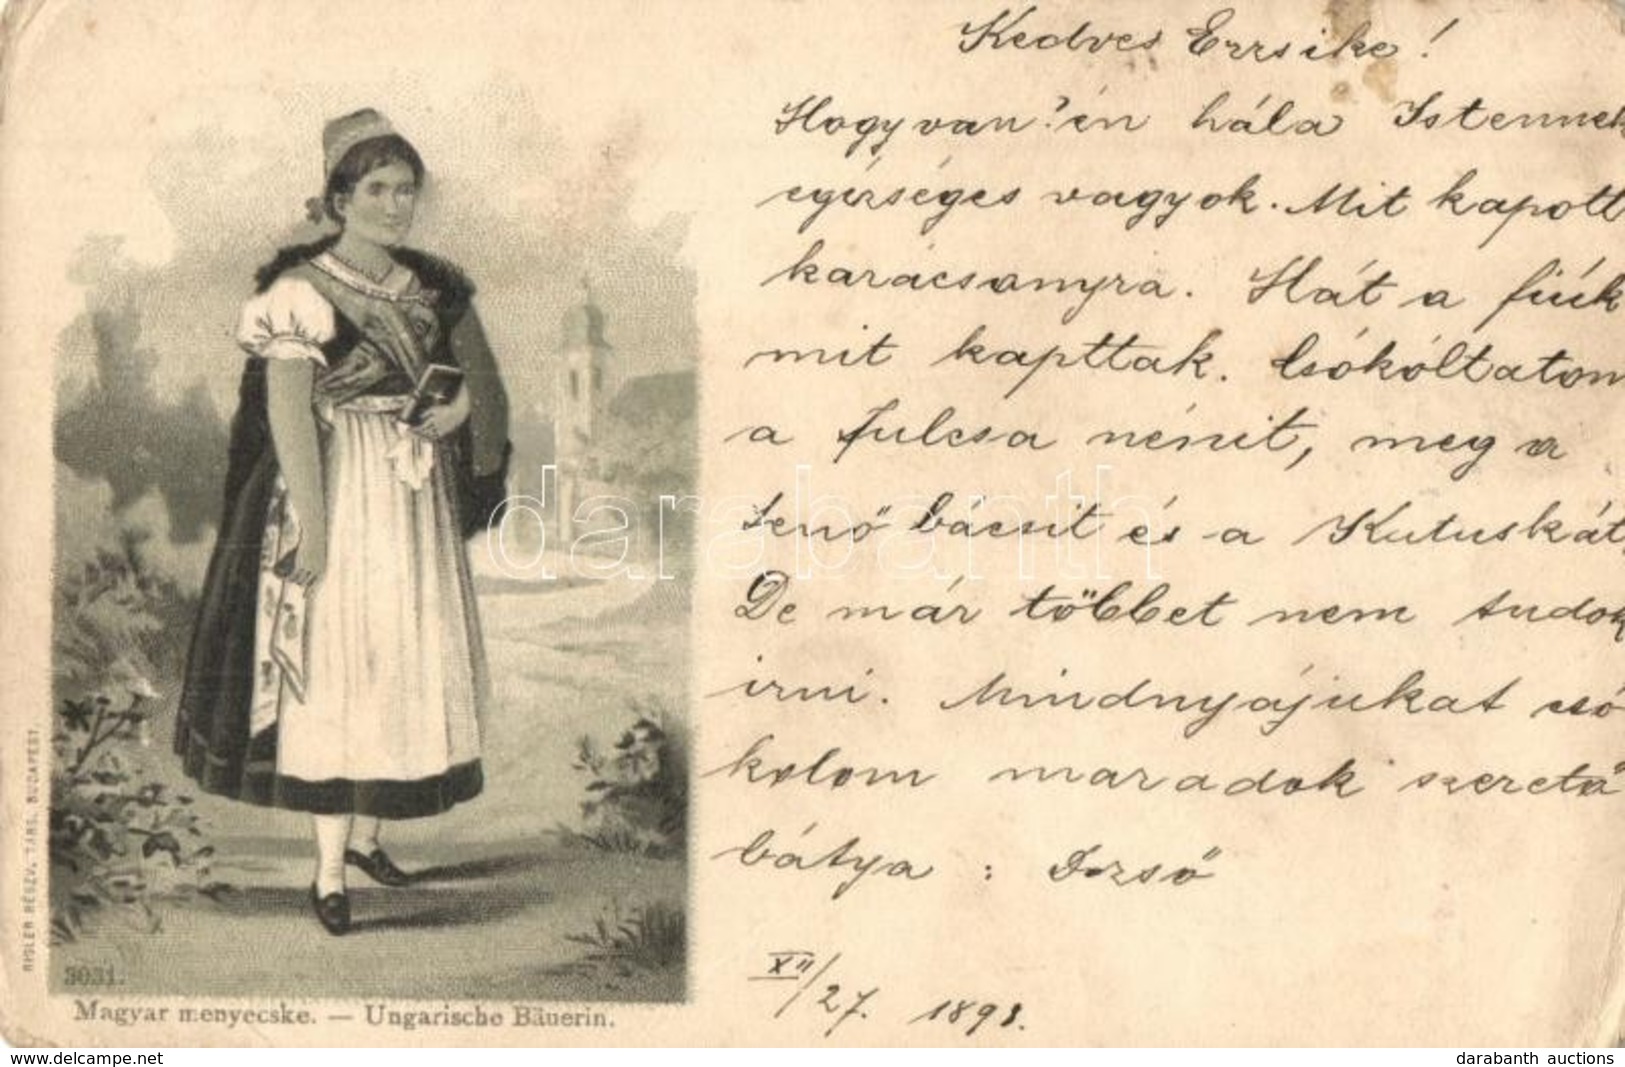 Kedves Errsike!
Hogy van? én hála Istennek
egésséges vagyok. Mit kapott
karácsonyra. Hát a fiúk
mit kapttak. Csókóltatom
a Julcsa nénit, meg a
Jenő bácsit és a Kutuskát.
De már többet nem tudok
irni. Mindnyájukat csó
kolom maradok szerető
bátya : Dezső
XII/27. 1898.
3031.
Magyar menyecske. — Ungarische Bäuerin.
RIGLER RÉSZV. TÁRS. BUDAPEST.
darabanth
www.darabanth.com
darabanth auctions